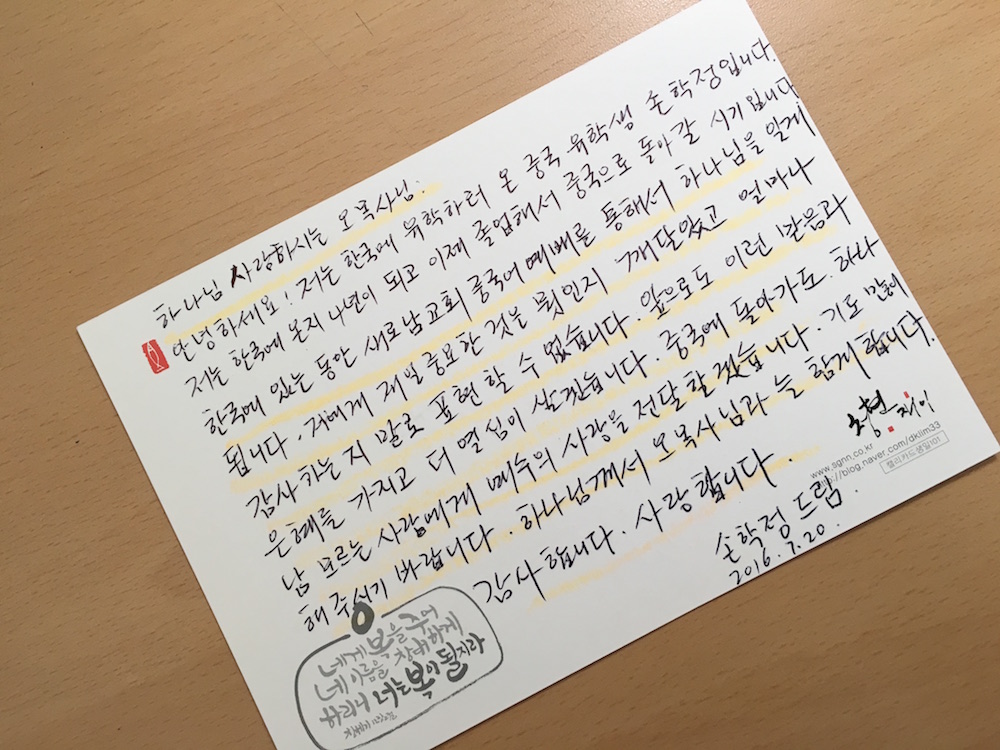 하나님 사랑하시는 오목사님:
안녕하세요! 저는 한국에 유학하러 온 중국 유학생 손학정입니다.
저는 한국에 온지 4년이 되고 이제 졸업해서 중국으로 돌아갈 시기 입니다
한국에 있는 동안 새로남교회 중국어예배를 통해서 하나님을 알게
됩니다. 저에게 제일 중요한 것을 뭔인지 깨달았고 얼마나
감사하는지 말로 표현할 수 없습니다. 앞으로도 이런 믿음과
은혜를 가지고 더 열심이 살겠습니다. 중국에 돌아가도. 하나
님 모르는 사람에게 예수의 사랑을 전달할겠습니다. 기도 많이
해 주시기 바랍니다. 하나님께서 오목사님과 늘 함께 합니다.
감사합니다. 사랑합니다.
손학정 드림.
2016. 7. 20.
www.sgnn.co.kr
http://blog.naver.com/dklim33
캘리카드종일101
네게 복을 주어
네 이름을 창대하게
하리니 너는 복이 될지라